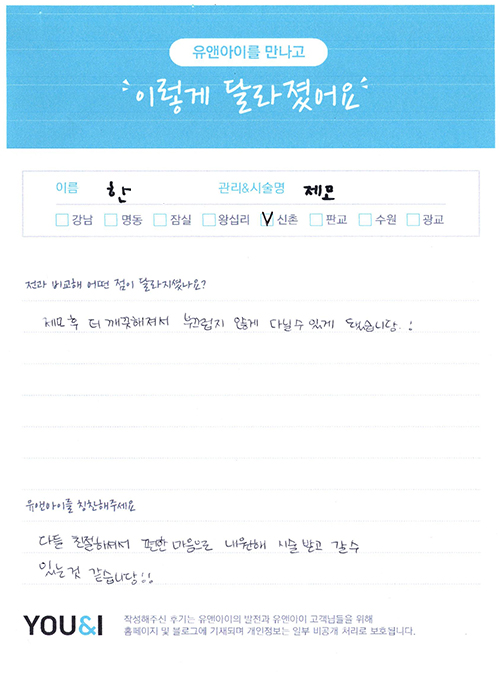 유앤아이를 만나고
이렇게 달라졌어요
이름 한 관리&시술명 제모
강남 명동 잠실 왕십리 V 신촌 판교 수원 광교
전과 비교해 어떤 점이 달라지셨나요?
제모 후 더 깨끗해져서 부끄럽지 않게 다닐 수 있게 됐습니당.!
유앤아이를 칭찬해주세요
다들 친절하셔서 편한 마음으로 내원해 시술 받고 갈 수
있는 것 같습니당!!
YOU&I
작성해주신 후기는 유앤아이의 발전과 유앤아이 고객님들을 위해
홈페이지 및 블로그에 기재되며 개인정보는 일부 비공개 처리로 보호됩니다.